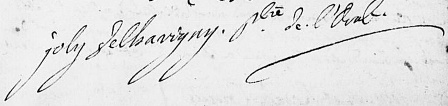 joly Delhavigny. Pbtre de l'Orat.